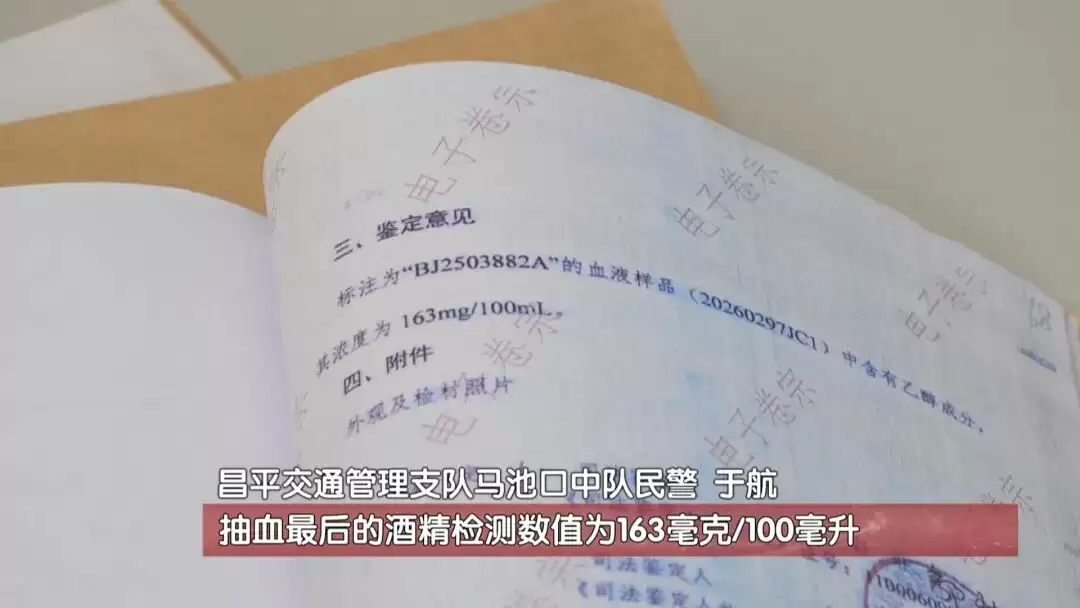 电子卷宗
电子卷宗
三、鉴定意见
标注为“BJ2503882A”的血液样品（20260297JC1）中含有乙醇成分，
其浓度为 163mg/100mL。
电子卷宗
四、附件
外观及检材照片
电子卷宗
电子卷宗
昌平交通管理支队马池口中队民警 于航
抽血最后的酒精检测数值为163毫克/100毫升
司法鉴定人
《司法鉴定人